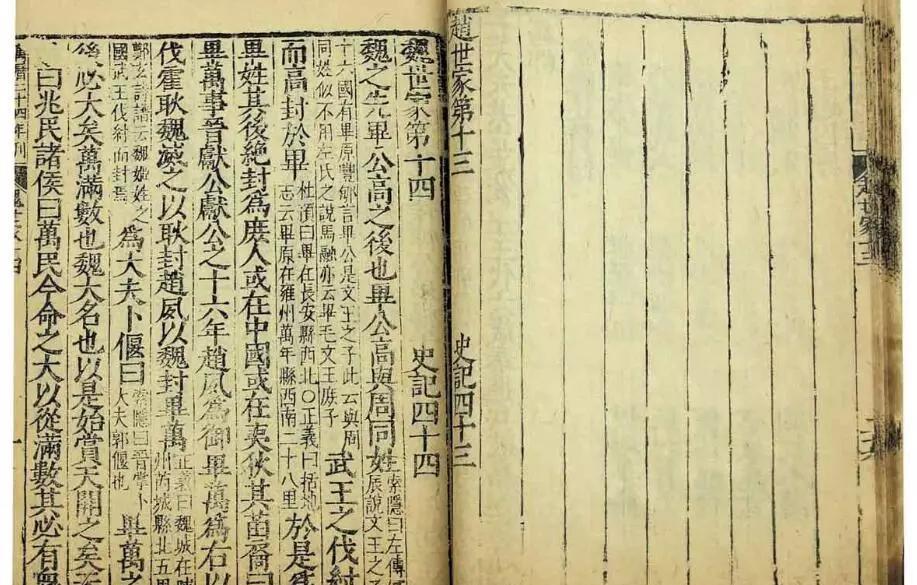 趙世家十三
趙世家第十三 史記四十三
魏世家第十四 史記四十四
魏之先畢公高之後也畢公高與周同姓
索隱曰左傳
辰說文王之子
十六國有畢原豐郇言畢公是文王之子此云與周
同姓似不用左氏之說馬融亦云畢毛文王庶子
武王之伐紂
而高封於畢
杜預曰畢在長安縣西北○正義曰括地
志云畢原在雍州萬年縣西南二十八里
於是爲
畢姓其後絶封爲庶人或在中國或在夷狄其苗裔曰
畢萬事晉獻公獻公之十六年趙夙爲御畢萬爲右以
伐霍耿魏滅之以耿封趙夙以魏封畢萬
正義曰魏城在陝
州芮城縣北五里
鄭玄詩譜云魏姬姓之
國武王伐紂而封焉
爲大夫卜偃曰
索隱曰晉掌卜
大夫郭偃也
畢萬之
後必大矣萬滿數也魏大名也以是始賞天開之矣天
曰兆民諸侯曰萬民今命之大以從滿數其必有衆
萬曆二十四年刊 魏世家十四 一